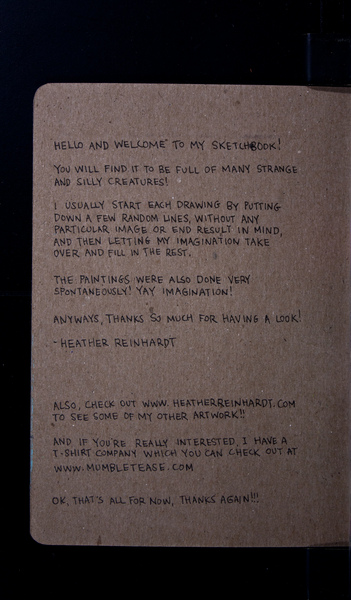 HELLO AND WELCOME TO MY SKETCHBOOK!
YOU WILL FIND IT TO BE FULL OF MANY STRANGE
AND SILLY CREATURES!
I USUALLY START EACH DRAWING BY PUTTING
DOWN A FEW RANDOM LINES, WITHOUT ANY
PARTICULAR IMAGE OR END RESULT IN MIND,
AND THEN LETTING MY IMAGINATION TAKE
OVER AND FILL IN THE REST.
THE PAINTINGS WERE ALSO DONE VERY
SPONTANEOUSLY! YAY IMAGINATION!
ANYWAYS, THANKS SO MUCH FOR HAVING A LOOK!
- HEATHER REINHARDT
ALSO, CHECK OUT WWW.HEATHERREINHARDT.COM
TO SEE SOME OF MY OTHER ARTWORK!!
AND IF YOU'RE REALLY INTERESTED, I HAVE A
T-SHIRT COMPANY WHICH YOU CAN CHECK OUT AT
WWW.MUMBLETEASE.COM
OK, THAT'S ALL FOR NOW, THANKS AGAIN!!!